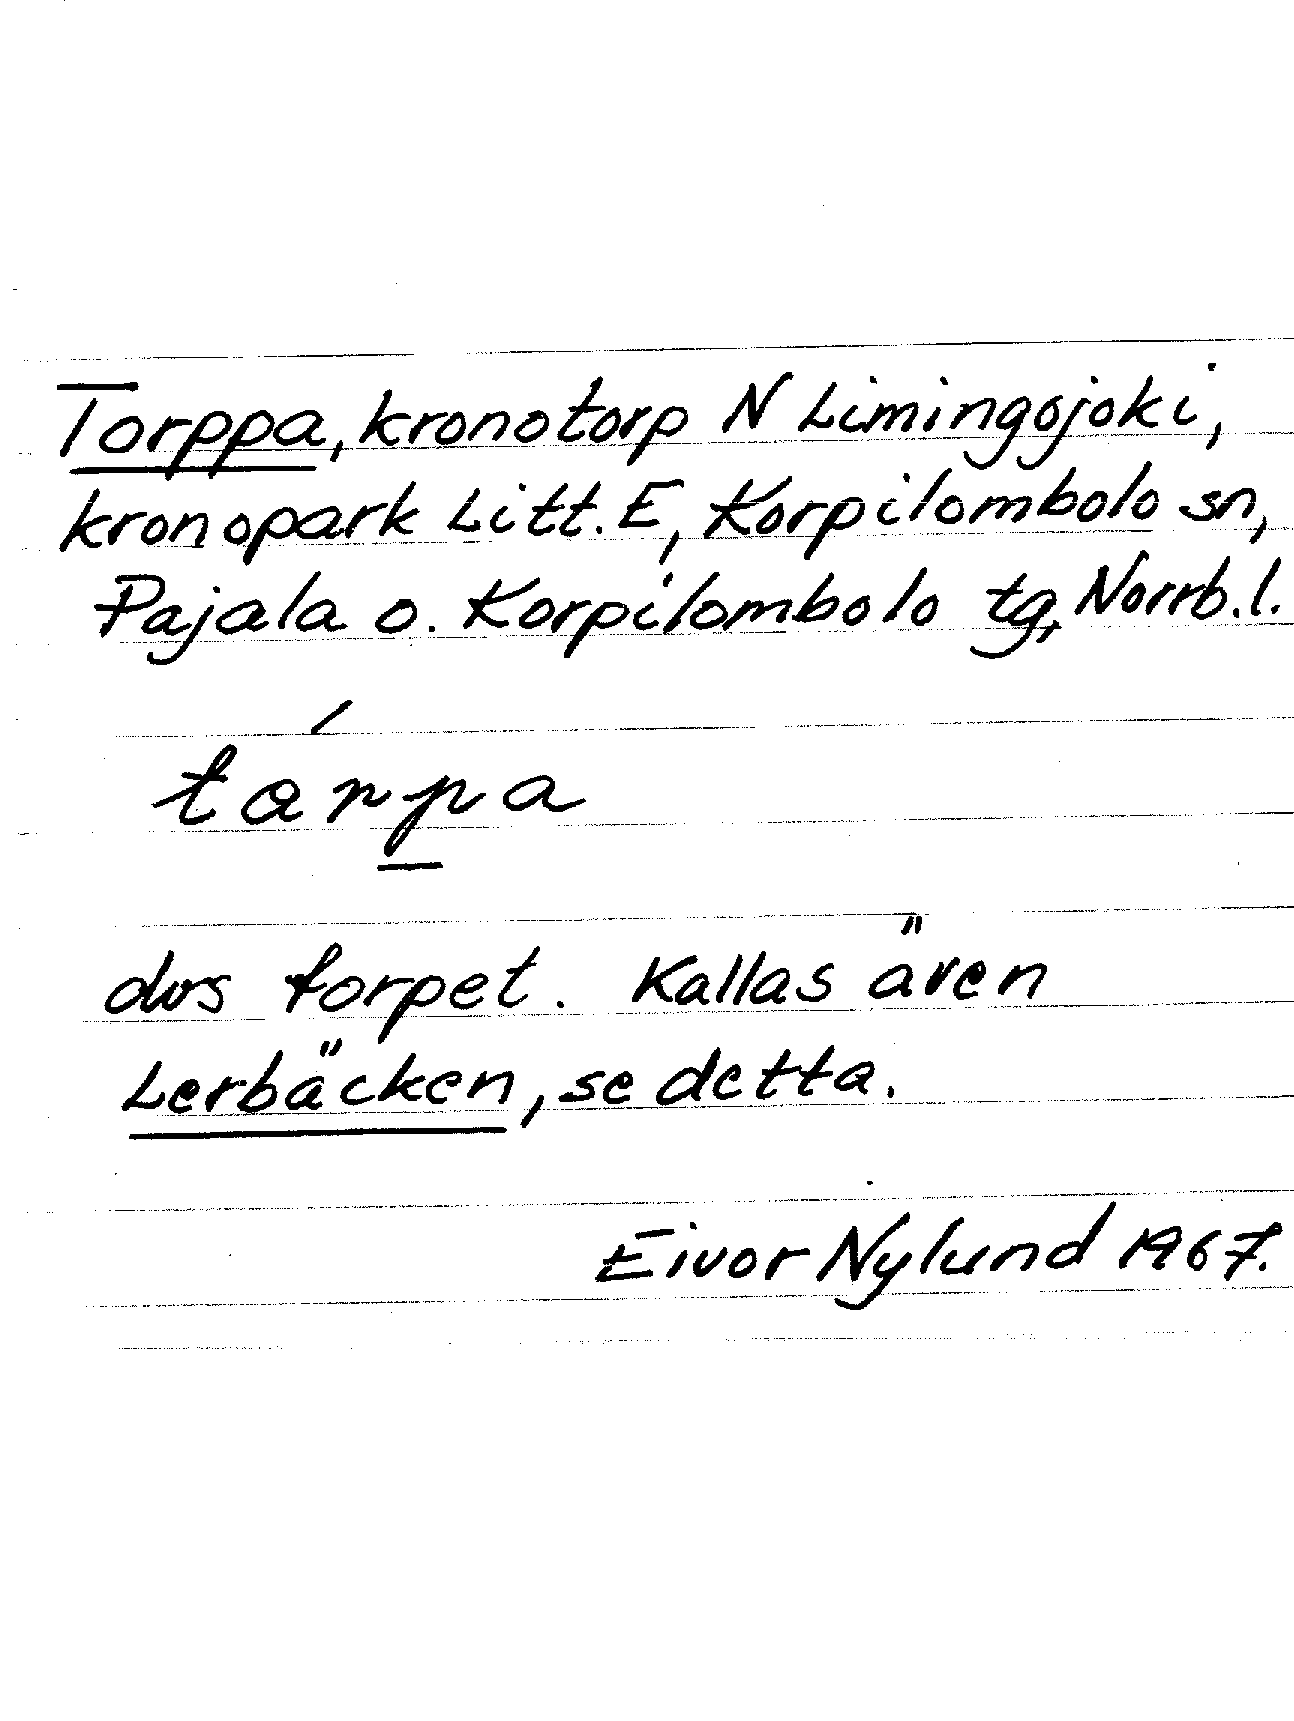 Torppa, kronotorp N Limingojoki,
kronopark Litt. E, Korpilombolo sn,
Pajala o. Korpilombolo tg, Norrb. l.
tárpa
dvs torpet. Kallas även
Lerbäcken, se detta.
Eivor Nylund 1967.